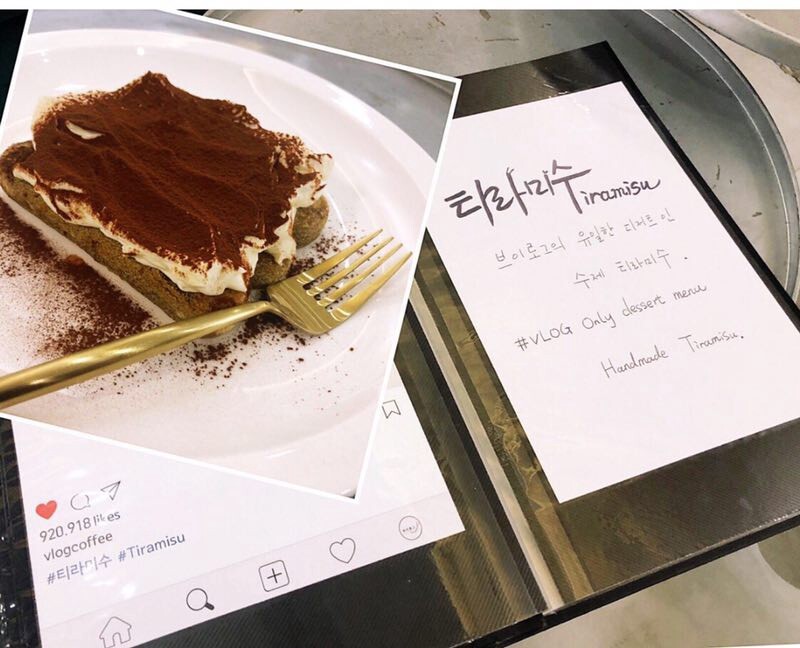 920.918 likes
vlogcoffee
#티라미수 #Tiramisu
티라미수 Tiramisu
브이로그의 유일한 디저트인
수제 티라미수.
#VLOG Only dessert menu
Handmade Tiramisu.